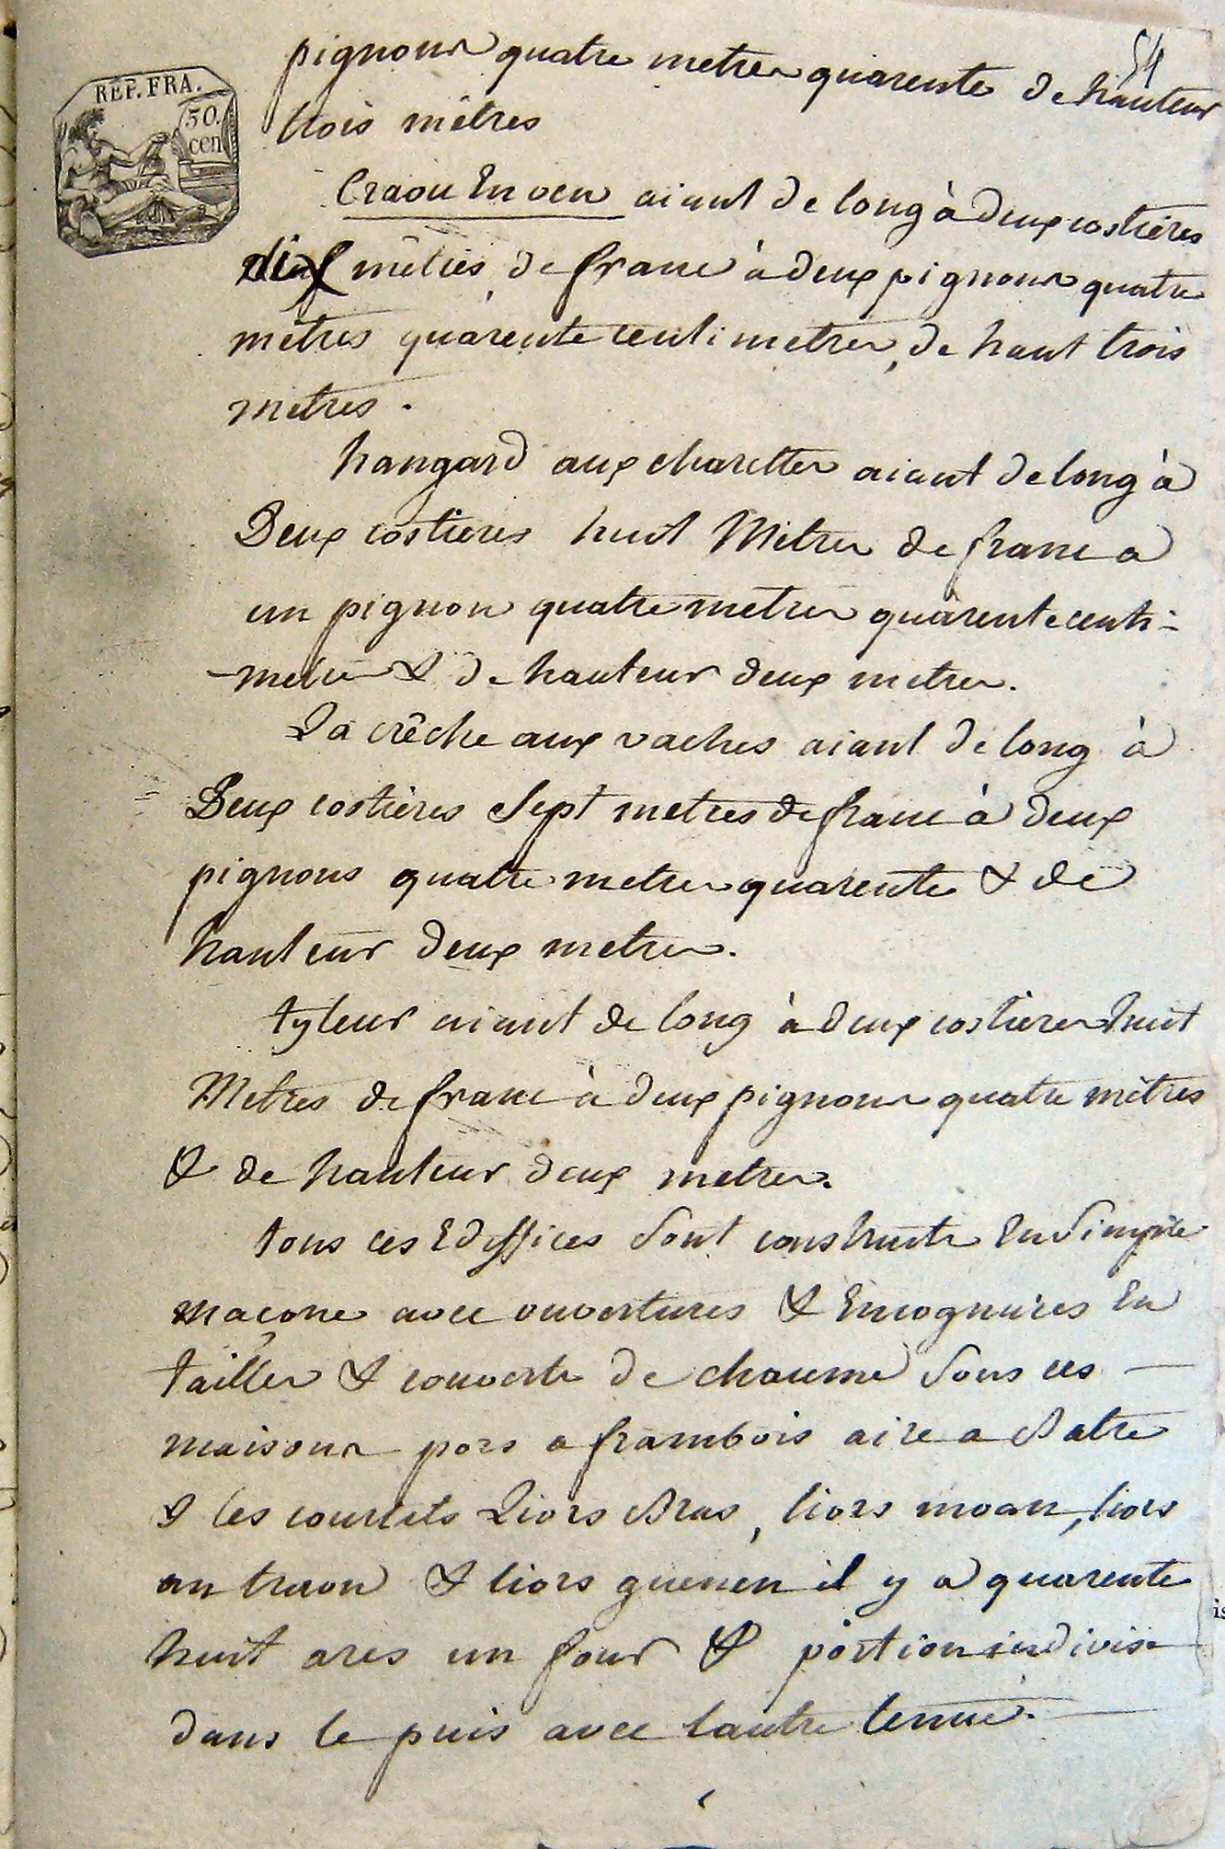 54
REP. FRA.
50.
cen
pignons quatre metres quarente de hauteur
trois mêtres
Craou En oen aiant de long à deux costières
dix mêtres, de franc à deux pignons quatre
mêtres quarente centimetres, de haut trois
metres.
hangard aux charettes aiant de long à
Deux costieres huit Mètres de franc a
un pignon quatre metres quarente centi-
-metres & de hauteur deux metres.
La crêche aux vaches aiant de long à
Deux costières Sept metres de franc à deux
pignons quatre metres quarente & de
hauteur deux metres.
tyleur aiant de long à deux costieres huit
Metres de franc à deux pignons quatre mètres
& de hauteur deux metres.
tous ces Ediffices sont construits En simple
maçone avec ouvertures & Encognures En
tailles & couverts de chaume sous ces
maisons pors a frambois aire a Batre
& les courtils Liors Bras, liors moan, liors
an traon & liors guenen il y a quarente
huit ares un four & portion indivise
dans le puis avec lautre tenue.